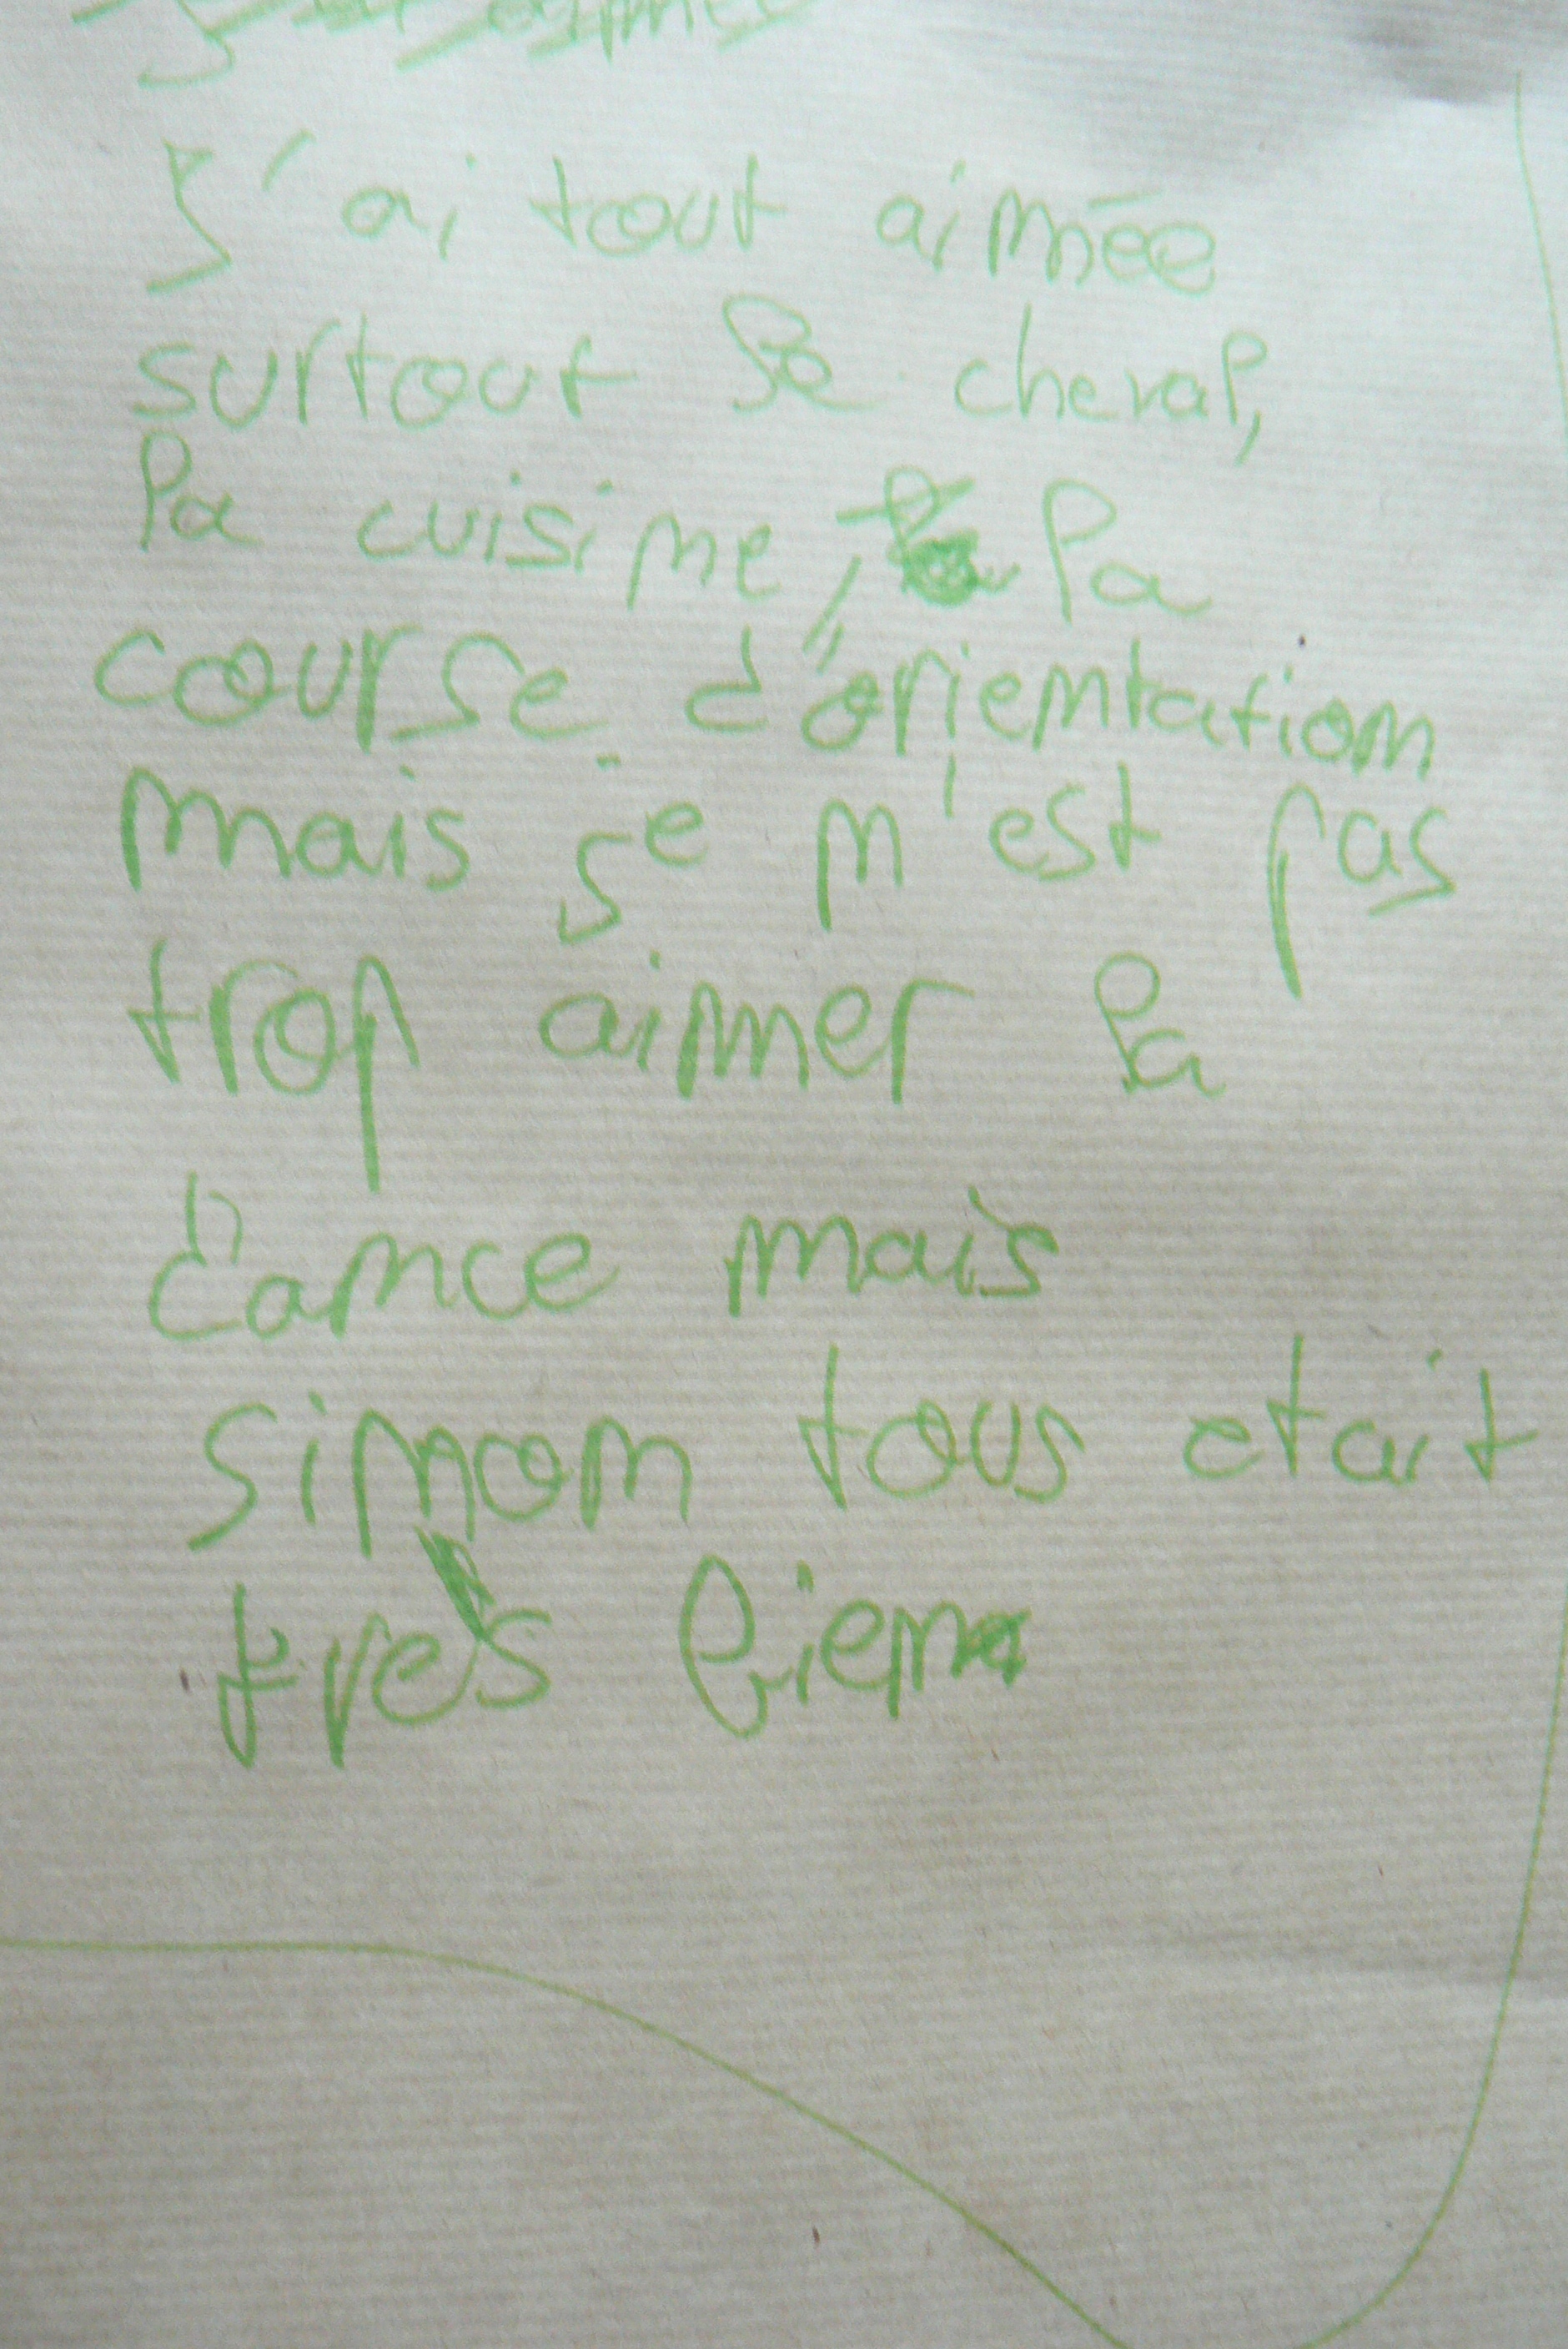 J'ai tout aimée
surtout le cheval,
la cuisine, la
course d'orientation
mais je n'est pas
trop aimer la
dance mais
sinon tous etait
très bien